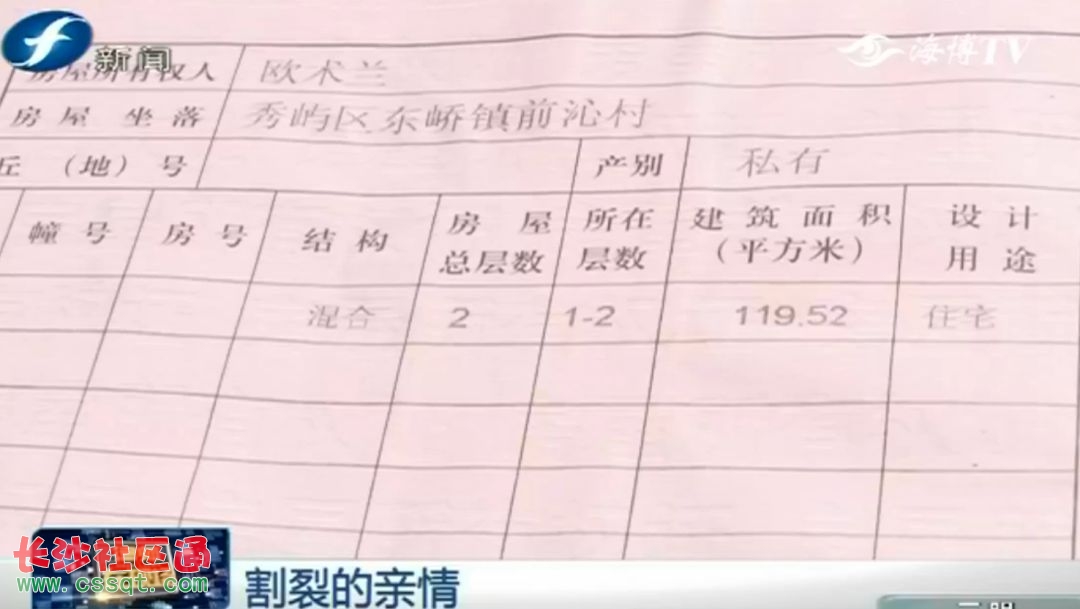 新闻
海博TV
房屋所有权人 欧术兰
房屋坐落 秀屿区东峤镇前沁村
丘(地)号 产别 私有
幢号 房号 结构 房屋总层数 所在层数 建筑面积(平方米) 设计用途
混合 2 1-2 119.52 住宅
长沙社区通
www.cssqt.com
割裂的亲情